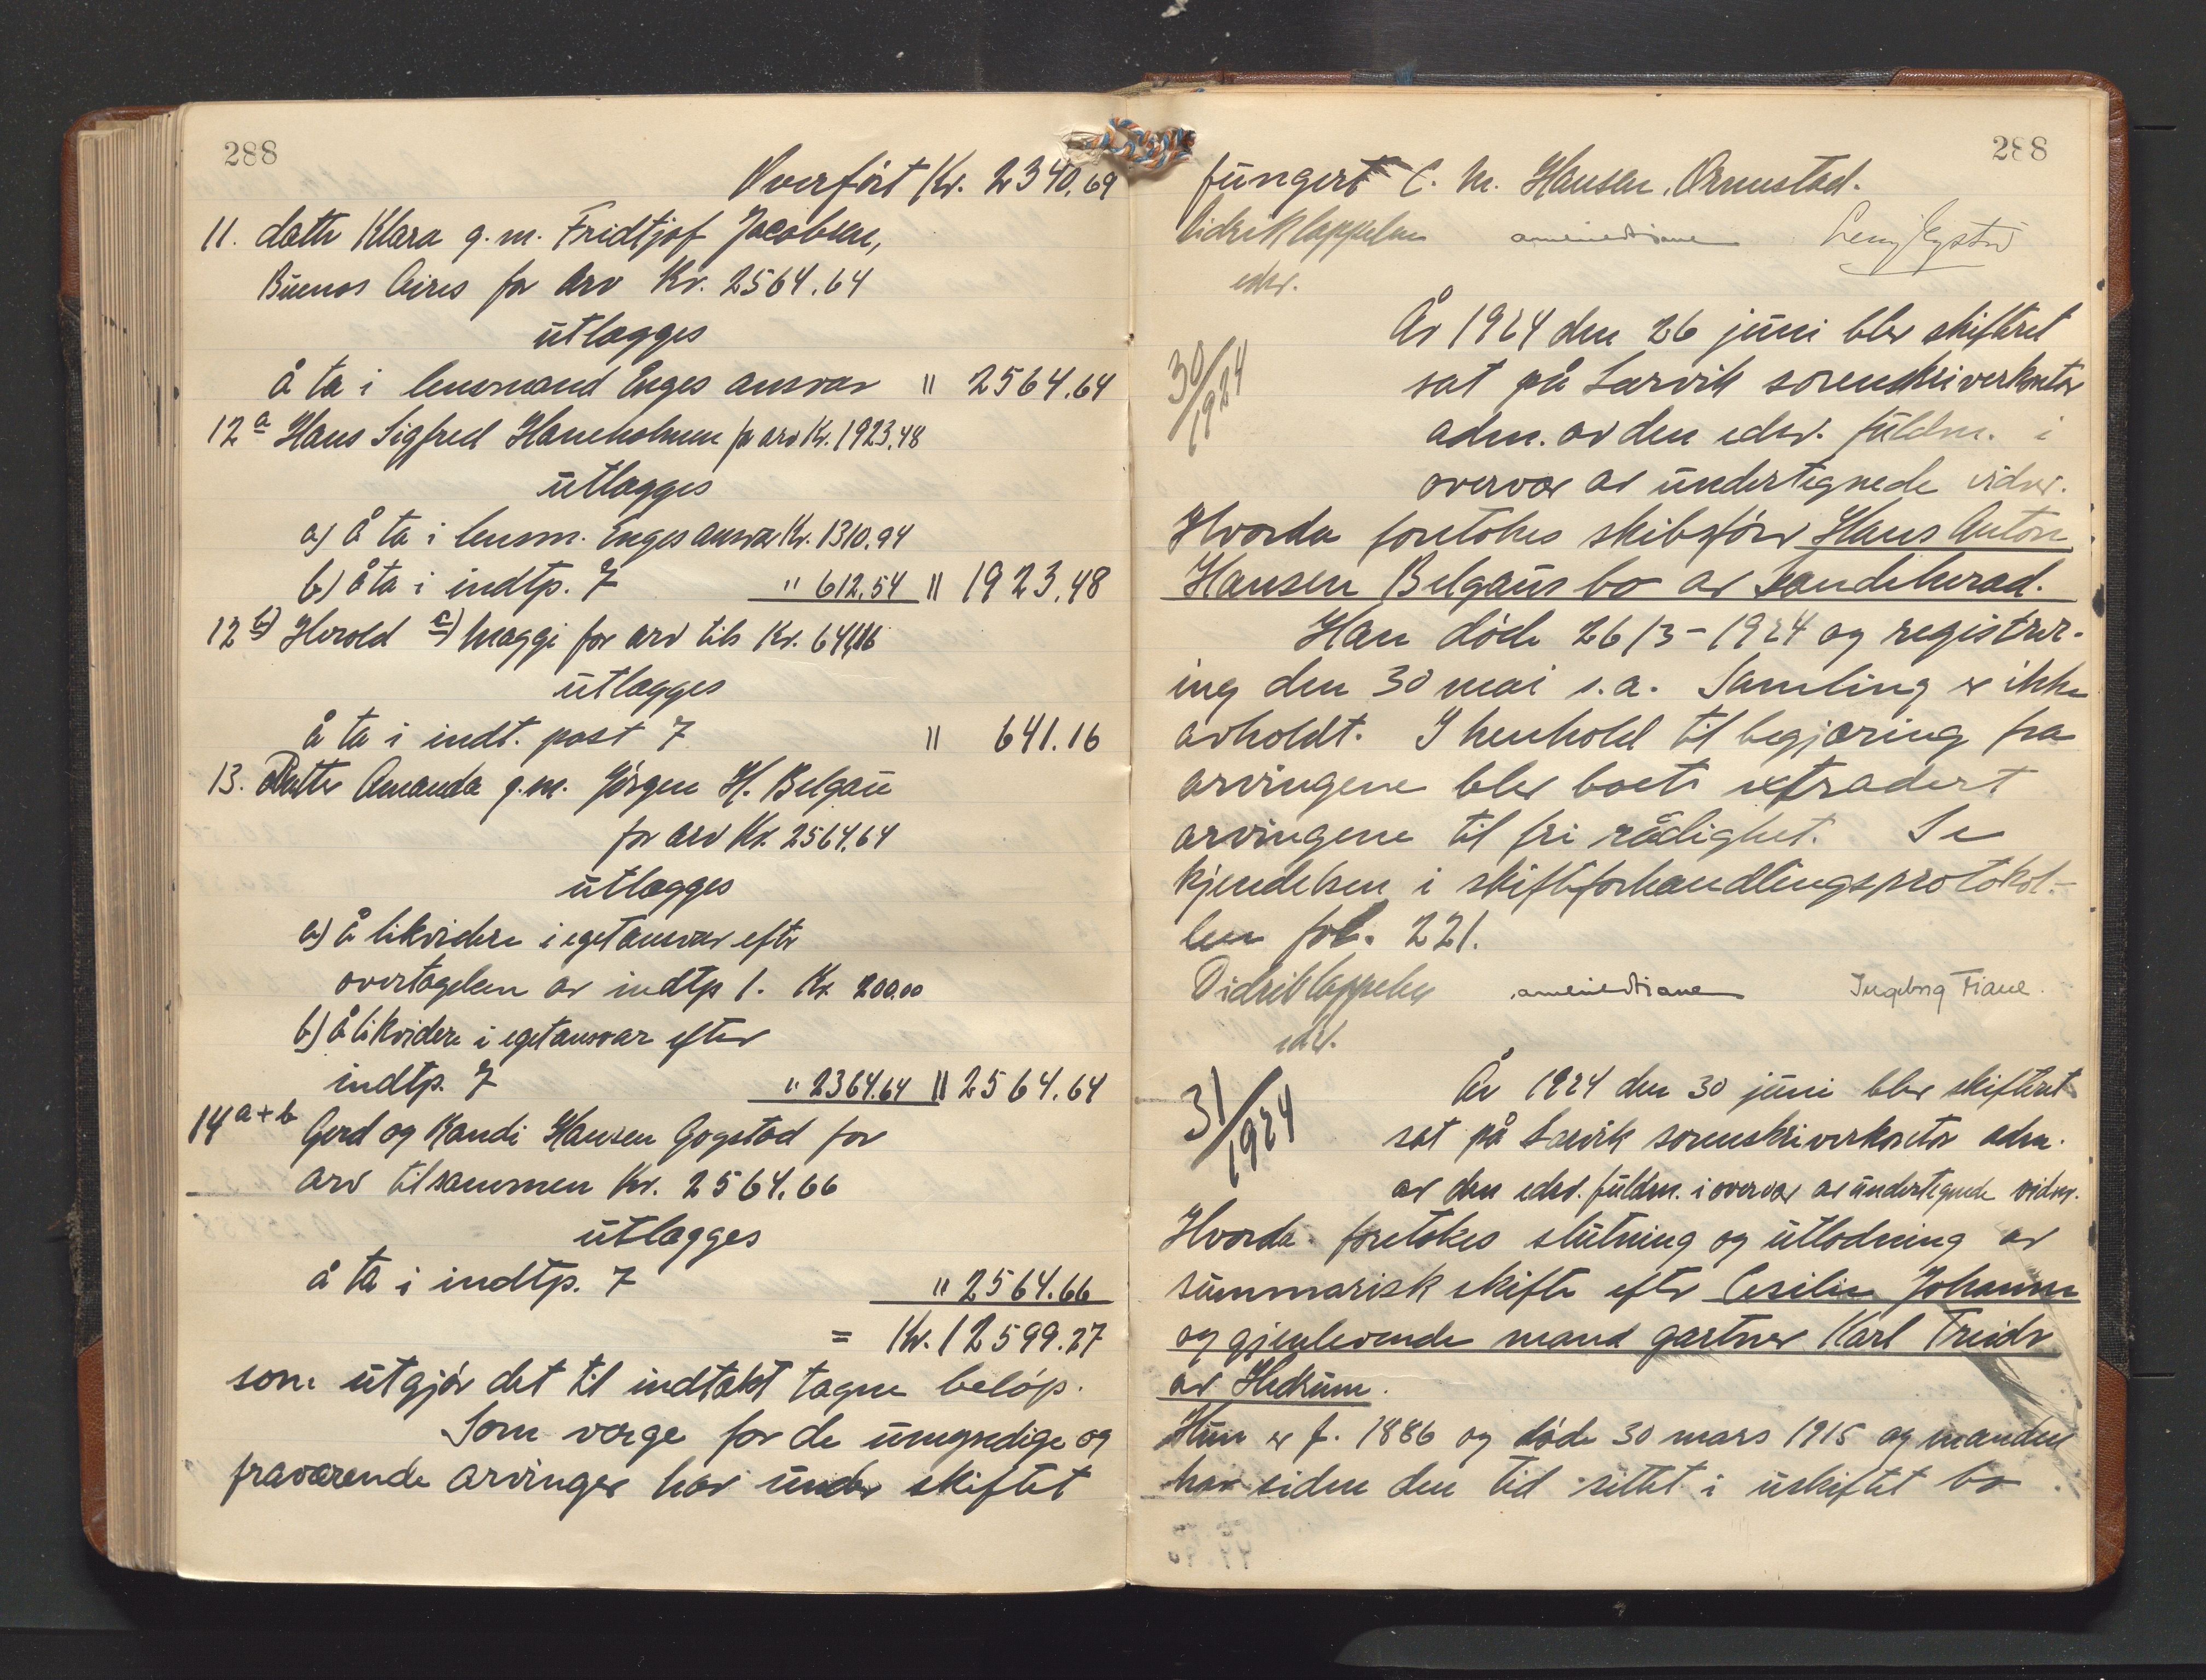 288
Overført Kr. 2340,69
11. datter Klara g.m. Fridtjof Jacobsen,
Buenos Aires for arv Kr. 2564.64
utlægges
å ta i lensmand Enges ansvar " 2564.64
12a Hans Sigfred Haneholmen for arv Kr. 1923,48
utlægges
a) å ta i lensm. Enges ansvar Kr. 1310.94
b) å ta i indtp. 7 " 612.54 " 1923.48
12 b) Herold c) Maggi for arv tils Kr. 641,16
utlægges
å ta i indt. post 7 " 641.16
13. Datter Amanda g.m. Jørgen H. Belgau
for arv Kr. 2564.64
utlægges
a) å likvidere i eget ansvar efter
overtagelsen av indtp 1. Kr. 200.00
b) å likvidere i eget ansvar efter
indtp. 7 " 2364.64 " 2564.64
14 a+b Gerd og Randi Hansen Gogstad for
arv tilsammen Kr. 2564.66
utlægges
å ta i indtp. 7 " 2564.66
= Kr. 12599.27
som utgjør det til indtækt tagne beløp.
Som verge for de umyndige og
fraværende arvinger har under skiftet
288
fungert C. M. Hansen, Ormestad.
Didrik Cappelen
edsv.
30/1924
År 1924 den 26 juni blev skifteret
sat på Larvik sorenskriverkontor
adm. av den edsv. fuldm. i
overvær av undertegnede vidner.
Hvorda foretokes skibsfører Hans Anton
Hansen Belgaus bo av Sandeherad.
Han døde 26/3-1924 og registrer-
ing den 30 mai s.a. Samling er ikke
avholdt. I henhold til begjæring fra
arvingene blev boet extradert
arvingene til fri rådighet. Se
kjendelsen i skifteforhandlingsprotokol-
len fol. 221.
Didrik Cappelen Ingeborg Tiane.
edsv.
31/1924
År 1924 den 30 juni blev skifteret
sat på Larvik sorenskriverkontor adm.
av den edsv. fuldm. i overvær av undertegnede vidner.
Hvorda foretokes slutning og utlodning av
summarisk skifte efter Cesilie Johanne
og gjenlevende mand gartner Karl Treider
av Hedrum.
Hun er f. 1886 og døde 30 mars 1915 og manden
har siden den tid sittet i uskiftet bo